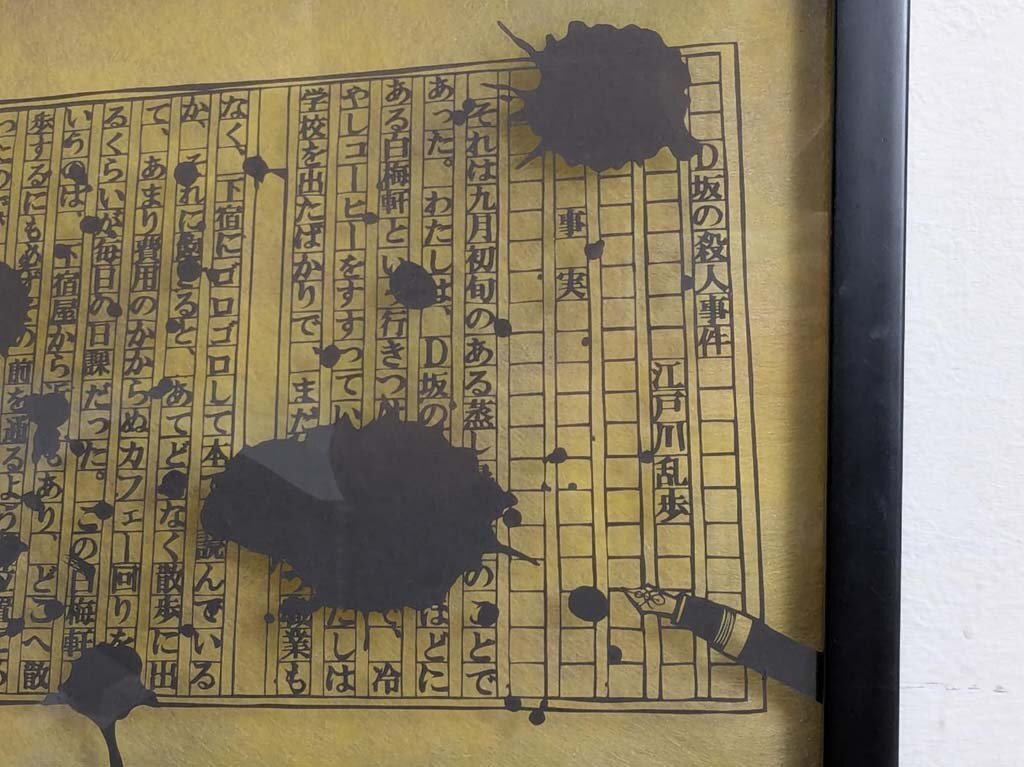 D坂の殺人事件
江戸川乱歩
事実
それは九月初旬のある蒸し のことで
あった。わたしは、D坂の ほどに
ある白梅軒とい 行きつけ 、冷
やしコーヒーをすすってい たしは
学校を出たばかりで まだ 業も
なく、下宿にゴロゴロして本 読んでいる
か、それに飽きると、あてどなく散歩に出
て、あまり費用のかからぬカフェー回りを
るくらいが毎日の日課だった。この白梅軒
いうのは、下宿屋から もあり、どこへ散
歩するにも その前を通るよう
ったので